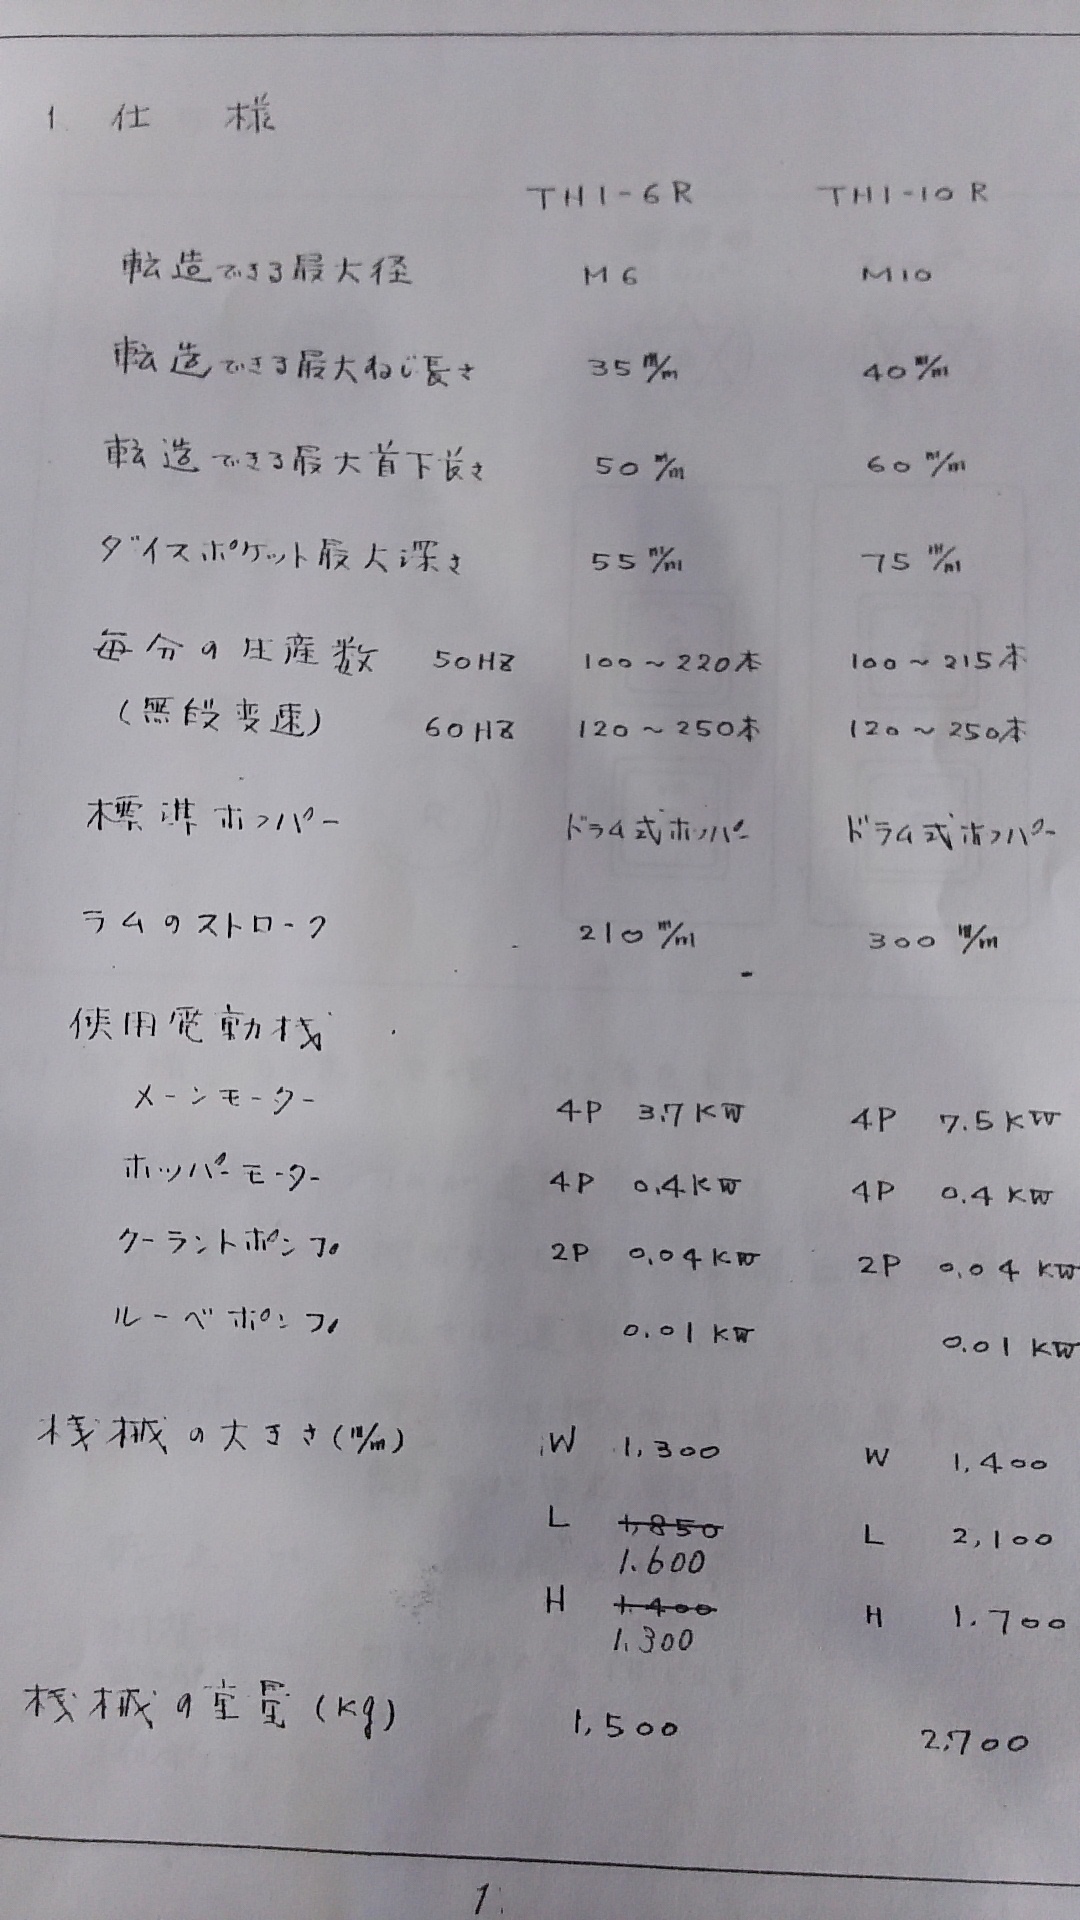 1. 仕 様
THI-6R THI-10R
転造できる最大径 M6 M10
転造できる最大ねじ長さ 35 m/m 40 m/m
転造できる最大首下長さ 50 m/m 60 m/m
ダイスポケット最大深さ 55 m/m 75 m/m
毎分の生産数 50HZ 100～220本 100～215本
(無段変速) 60HZ 120～250本 120～250本
標準ホッパー ドラム式ホッパー ドラム式ホッパー
ラムのストローク 210 m/m 300 m/m
使用電動機
メーンモーター 4P 3.7KW 4P 7.5KW
ホッパーモーター 4P 0.4KW 4P 0.4KW
クーラントポンプ 2P 0.04KW 2P 0.04KW
ルーベポンプ 0.01KW 0.01KW
機械の大きさ(m/m) W 1,300 W 1,400
L 1,850 L 2,100
1.600
H 1.400 H 1.700
1.300
機械の重量(kg) 1,500 2,700
1.